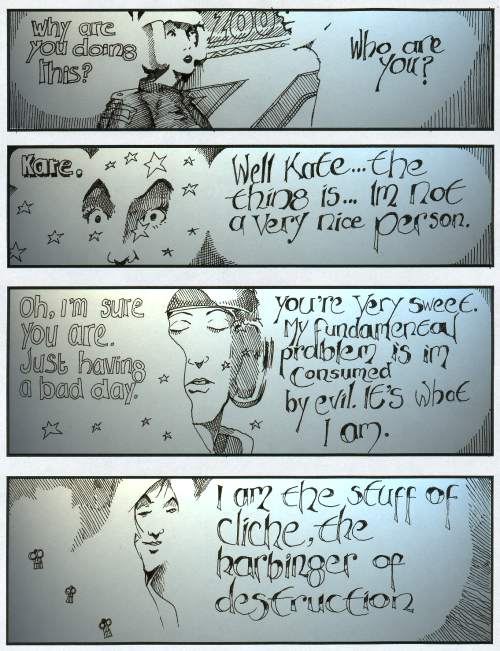 Why are
you doing
This?
ZOOS
Who are
you?
Kate.
Well Kate...the
thing is... Im not
a very nice person.
Oh, I'm sure
you are.
Just having
a bad day.
you're very sweet.
My fundamental
problem is im
consumed
by evil. It's what
I am.
I am the stuff of
cliche, the
harbinger of
destruction